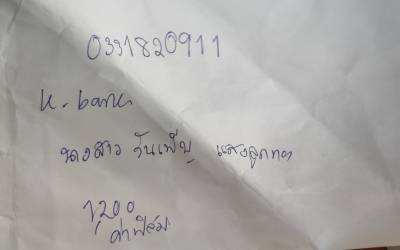 0331820911
K. bank
นางสาว วันเพ็ญ
1,200
ค่าฟิล์ม